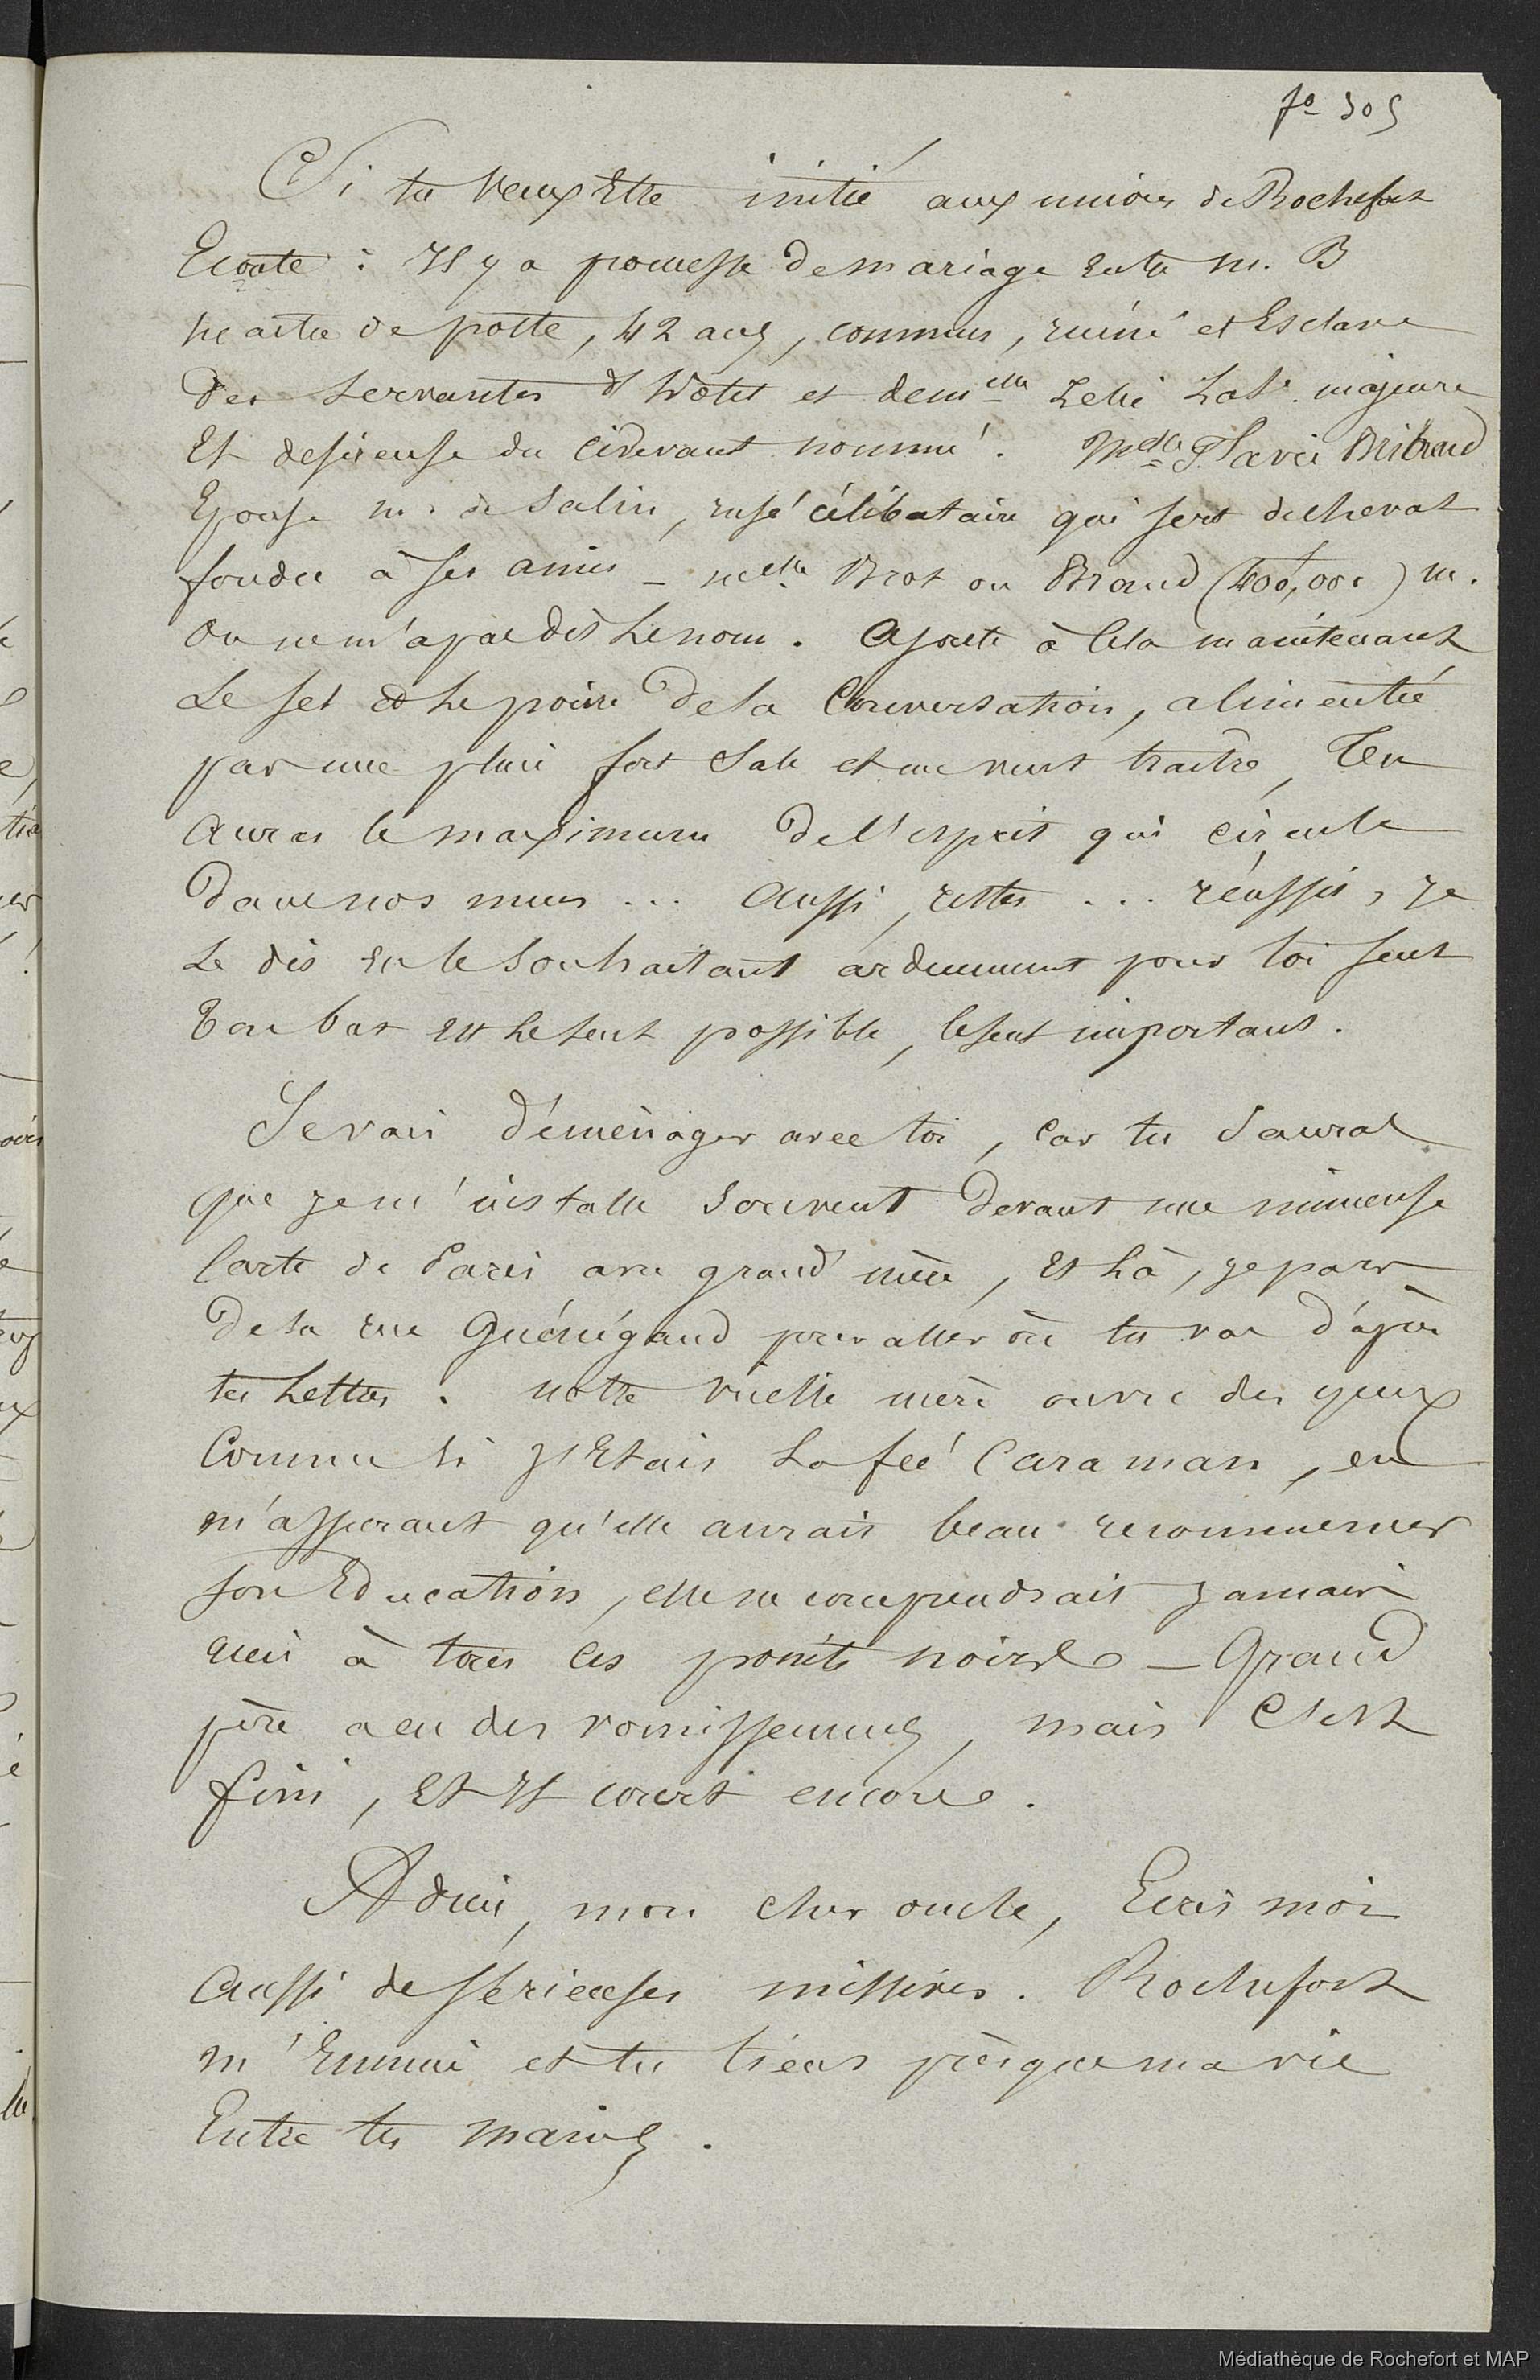 fo 305
Si tu veux être initié aux unions de Rochefort
Ecoute : Il y a promesse de mariage entre m. B
maitre de poste, 42 ans, commun, ruiné et Esclave
des servantes d'hôtel et demelle Zélie Lat. majeure
Et desireuse du cidevant nommé. Melle Flavie Bribaud
Epouse m. de Salin, rusé célibataire qui sert de cheval
fondu à ses amis _ melle Brot ou Braud (400,000) m.
on ne m'a pas dit le nom. Ajoute à Cela maintenant
Le sel et le poivre de la Conversation, alimentée
par une pluie fort Sale et un vent traître, t'en
auras le maximum de l'esprit qui circule
dans nos murs ... Aussi, restes ... réussis, je
Le dis en le souhaitant ardemment pour toi seul
ton but est le seul possible, le seul important.
Je vais déménager avec toi, car tu sauras
que je m'installe souvent devant une immense
Carte de Paris avec grand'mère, et là, je pars
de la rue Guénégaud pour aller où tu vas d'après
tes Lettres. Notre vieille mère ouvre des yeux
Comme si j'Etais La fée Caraman, en
m'assurant qu'elle aurait beau recommencer
son Education, elle ne comprendrait jamais
rien à tous ces points noirs _ Grand
père a eu des vomissements, mais C'est
fini, Et Il court encore.
Adieu, mon cher oncle, Ecris moi
aussi de sérieuses missives. Rochefort
m'Ennuie et tu tiens presque ma vie
Entre tes mains.
Médiathèque de Rochefort et MAP